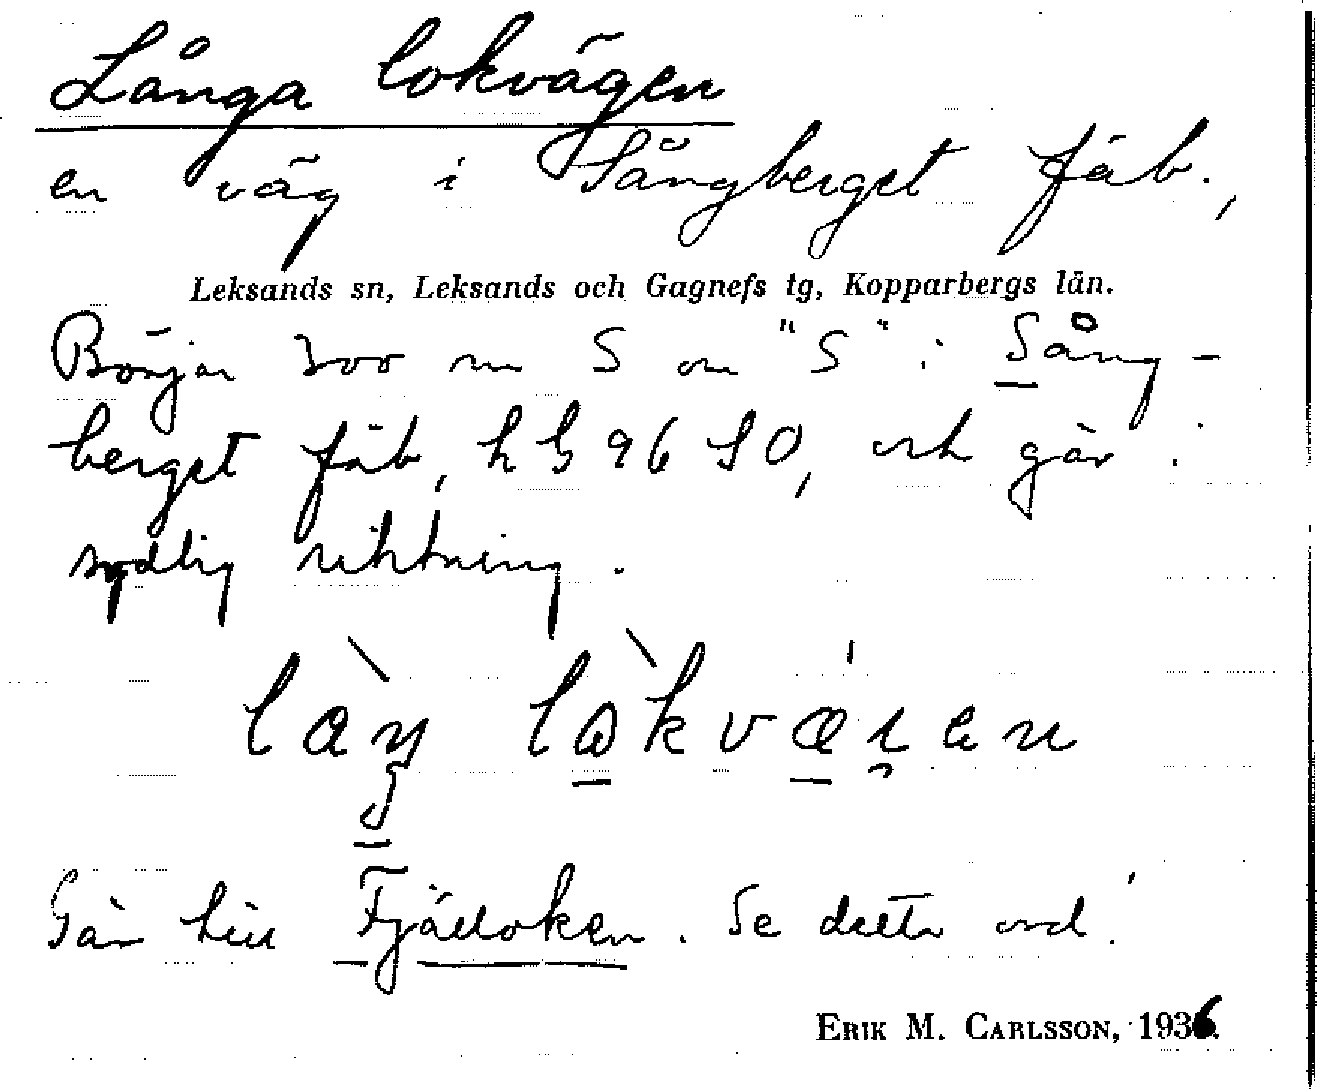 Långa lokvägen
en väg i Sångberget fäb.,
Leksands sn, Leksands och Gagnefs tg, Kopparbergs län.
Börjar 300 m S om "S" i Sång-
berget fäb, h 96 SO, och går i
sydlig riktning.
Går till Fjälloken. Se detta ord!
ERIK M. CARLSSON, 1936.